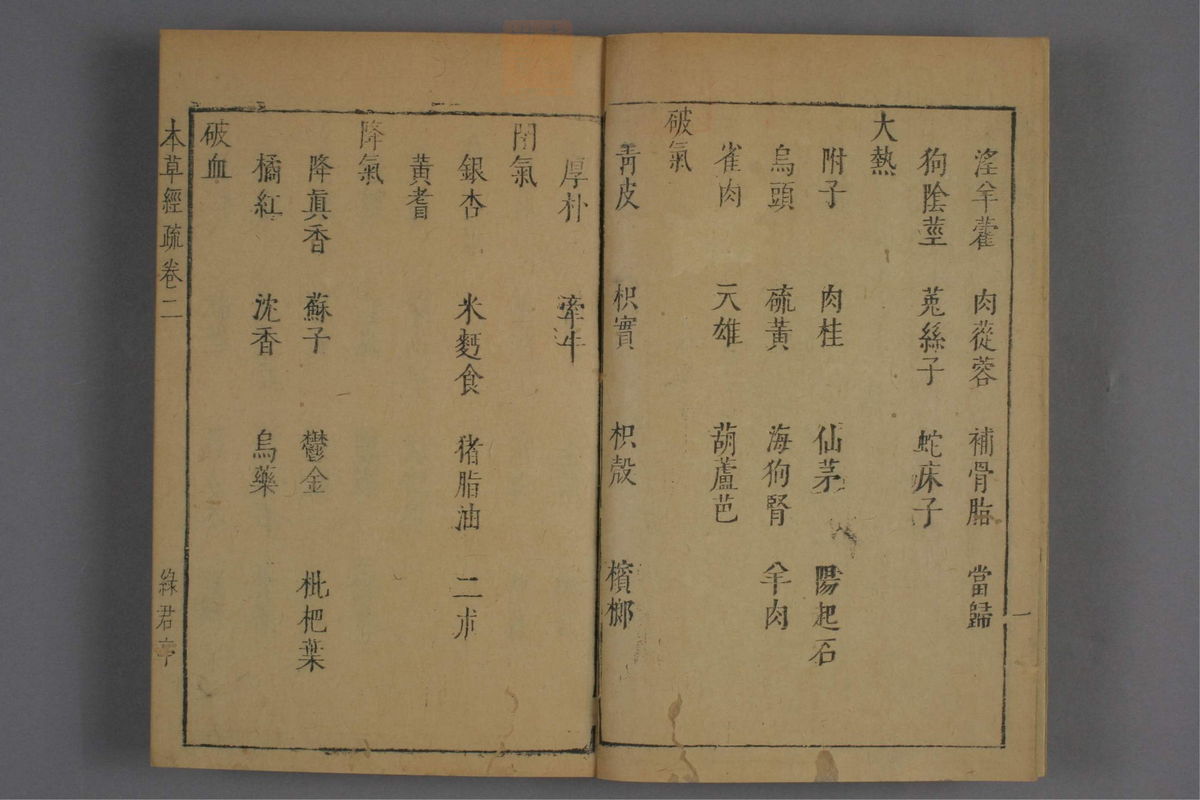 淫羊藿 肉蓯蓉 補骨脂 當歸
狗陰莖 菟絲子 蛇床子
大熱
附子 肉桂 仙茅 陽起石
烏頭 硫黃 海狗腎 羊肉
雀肉 天雄 葫蘆芭
破氣
靑皮 枳實 枳殼 檳榔
厚朴 牽牛
閉氣
銀杏 米麪食 猪脂油 二朮
黃耆
降氣
降眞香 蘇子 鬱金 枇杷葉
橘紅 沈香 烏藥
破血
本草經疏卷二 綠君亭
一